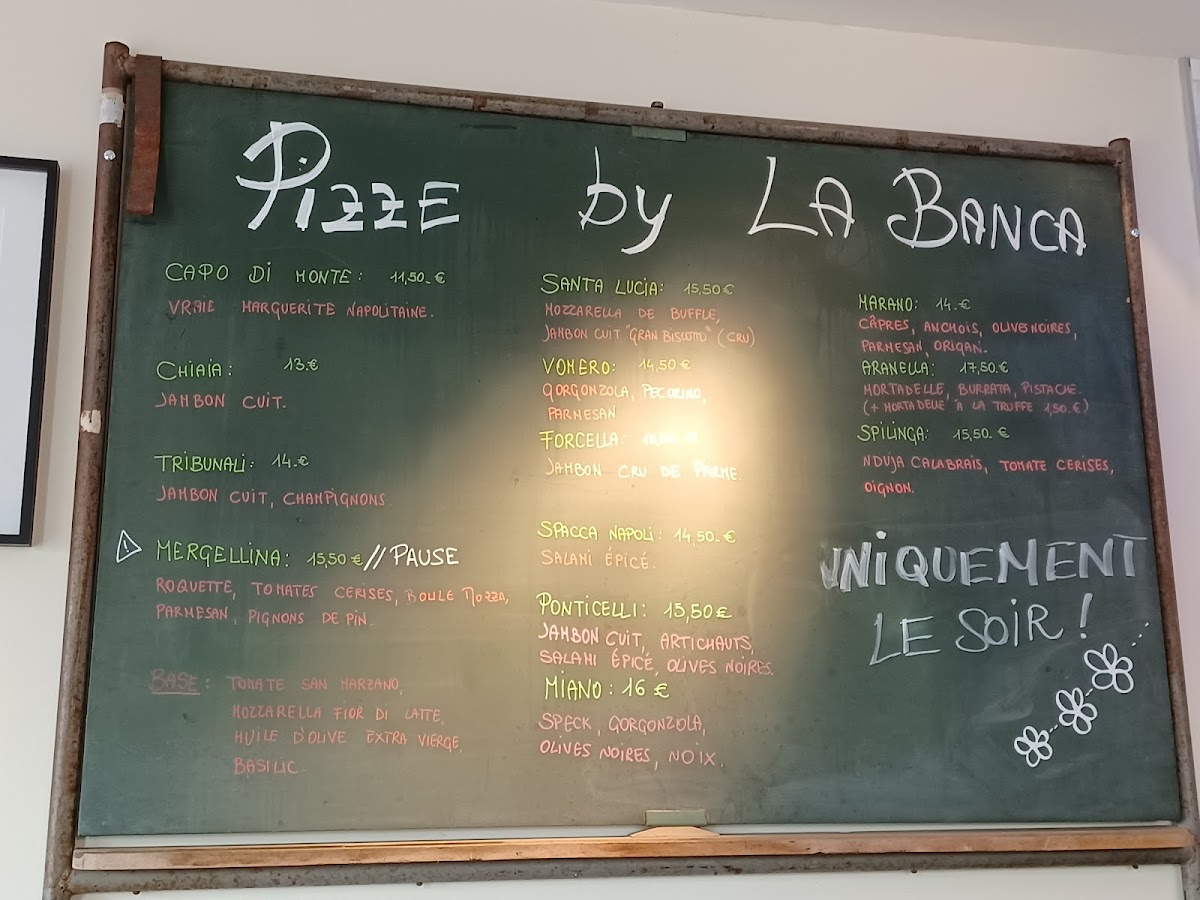 Pizze by LA BANCA
CAPO DI MONTE: 11,50.€
VRAIE MARGUERITE NAPOLITAINE.
CHIAIA: 13.€
JAMBON CUIT.
TRIBUNALI: 14.€
JAMBON CUIT, CHAMPIGNONS.
MERGELLINA: 15,50 € // PAUSE
ROQUETTE, TOMATES CERISES, BOULE MOZZA,
PARMESAN, PIGNONS DE PIN.
BASE: TOMATE SAN MARZANO,
MOZZARELLA FIOR DI LATTE,
HUILE D'OLIVE EXTRA VIERGE,
BASILIC.
SANTA LUCIA: 15,50€
MOZZARELLA DE BUFFLE,
JAMBON CUIT "GRAN BISCOTTO" (CRU)
VOMERO: 14,50 €
GORGONZOLA, PECORINO,
PARMESAN
FORCELLA:
JAMBON CRU DE PARME.
SPACCA NAPOLI: 14,50.€
SALAMI ÉPICÉ.
PONTICELLI: 15,50€
JAMBON CUIT, ARTICHAUTS,
SALAMI ÉPICÉ, OLIVES NOIRES.
MIANO: 16 €
SPECK, GORGONZOLA,
OLIVES NOIRES, NOIX.
MARANO: 14.€
CÂPRES, ANCHOIS, OLIVES NOIRES,
PARMESAN, ORIGAN.
ARANELLA: 17,50€
MORTADELLE, BURRATA, PISTACHE.
(+ MORTADELLE À LA TRUFFE 1,50.€)
SPILINGA: 15,50.€
NDUJA CALABRAIS, TOMATE CERISES,
OIGNON.
UNIQUEMENT
LE SOIR!